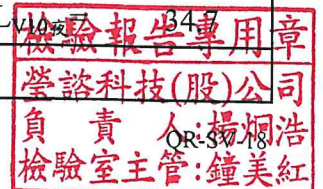 LV10夜 34.7
檢驗報告專用章
瑩諮科技(股)公司
負責人:楊炯浩
QR-SV-18
檢驗室主管:鐘美紅